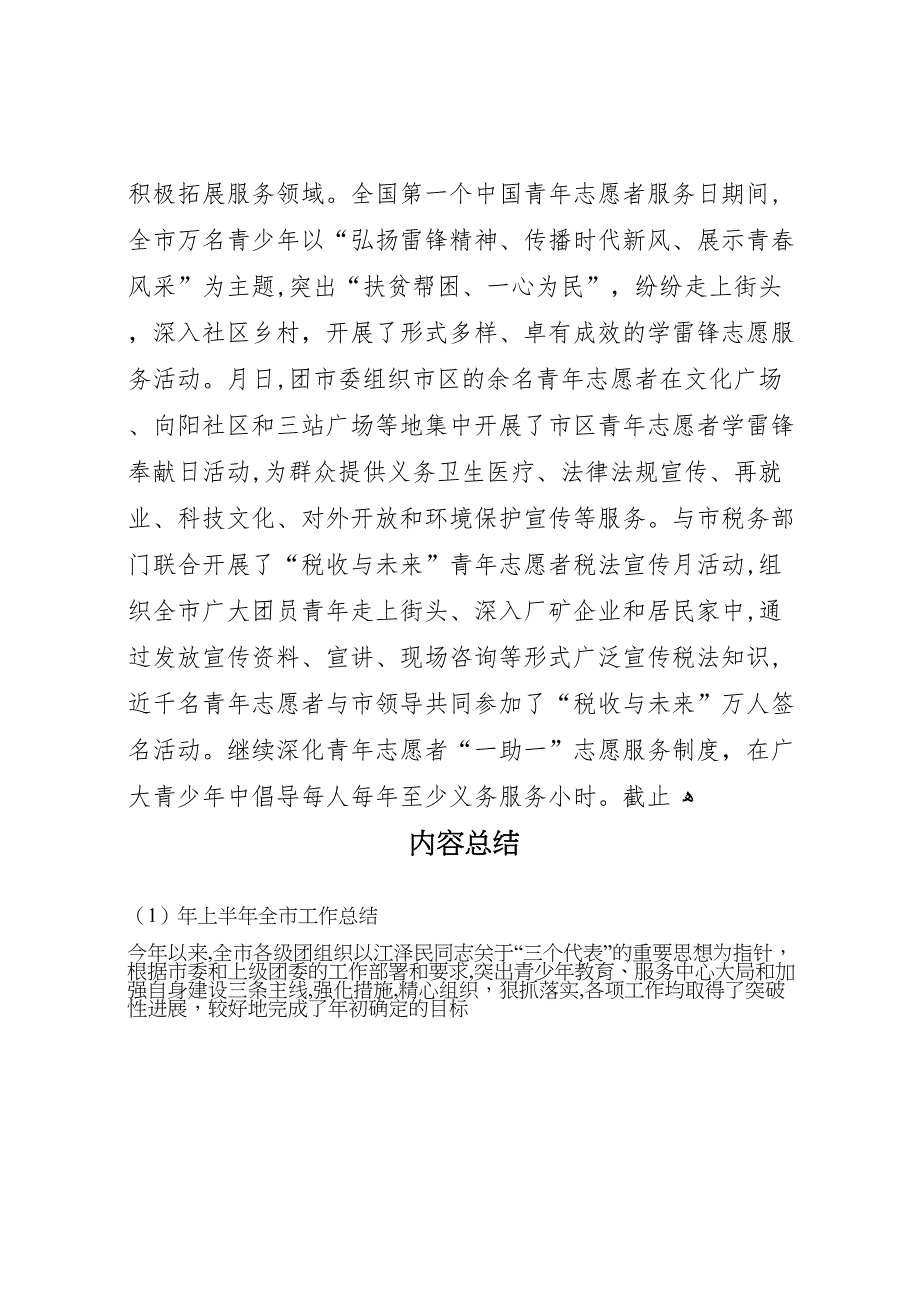 积极拓展服务领域。全国第一个中国青年志愿者服务日期间，
全市万名青少年以“弘扬雷锋精神、传播时代新风、展示青春
风采”为主题,突出“扶贫帮困、一心为民”，纷纷走上街头
，深入社区乡村，开展了形式多样、卓有成效的学雷锋志愿服
务活动。月日,团市委组织市区的余名青年志愿者在文化广场
、向阳社区和三站广场等地集中开展了市区青年志愿者学雷锋
奉献日活动,为群众提供义务卫生医疗、法律法规宣传、再就
业、科技文化、对外开放和环境保护宣传等服务。与市税务部
门联合开展了“税收与未来”青年志愿者税法宣传月活动,组
织全市广大团员青年走上街头、深入厂矿企业和居民家中,通
过发放宣传资料、宣讲、现场咨询等形式广泛宣传税法知识，
近千名青年志愿者与市领导共同参加了“税收与未来”万人签
名活动。继续深化青年志愿者“一助一”志愿服务制度，在广
大青少年中倡导每人每年至少义务服务小时。截止 ﻫ
内容总结
（1）年上半年全市工作总结
今年以来,全市各级团组织以江泽民同志关于“三个代表”的重要思想为指针，
根据市委和上级团委的工作部署和要求,突出青少年教育、服务中心大局和加
强自身建设三条主线,强化措施,精心组织，狠抓落实,各项工作均取得了突破
性进展，较好地完成了年初确定的目标